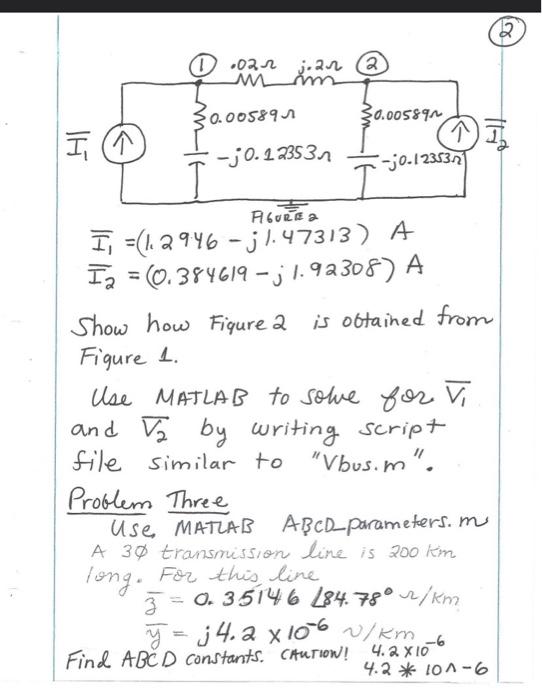 2
1 .02Ω j.2Ω 2
0.00589Ω 0.00589Ω
I̅₁ -j0.12353Ω -j0.12353Ω I̅₂
FIGURE 2
I̅₁ = (1.2946 - j1.47313) A
I̅₂ = (0.384619 - j1.92308) A
Show how Figure 2 is obtained from
Figure 1.
Use MATLAB to solve for V̅₁
and V̅₂ by writing script
file similar to "Vbus.m".
Problem Three
Use MATLAB ABCD_parameters.m
A 3Ø transmission line is 200 km
long. For this line
z̅ = 0.35146 ∠84.78° Ω/km
y̅ = j4.2 x 10⁻⁶ ℧/km
Find ABCD constants. CAUTION! 4.2 x 10⁻⁶
4.2 * 10^-6